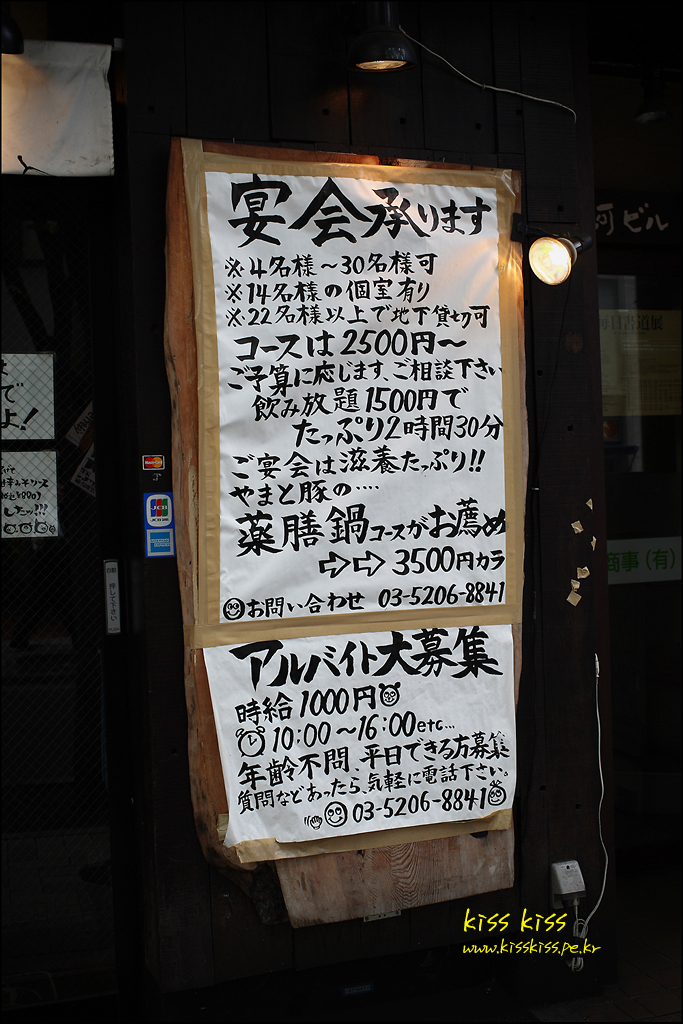 宴会承ります
※4名様〜30名様可
※14名様の個室有り
※22名様以上で地下貸切可
コースは2500円〜
ご予算に応じます、ご相談下さい
飲み放題1500円で
たっぷり2時間30分
ご宴会は滋養たっぷり!!
やまと豚の‥‥
薬膳鍋コースがお薦め
⇨⇨3500円カラ
お問い合わせ 03-5206-8841
アルバイト大募集
時給1000円
10:00〜16:00etc...
年齢不問、平日できる方募集
質問などあったら、気軽に電話下さい。
03-5206-8841
MasterCard
JCB
自動
押して下さい
で
よ!
河ビル
毎日書道展
商事(有)
kiss kiss
www.kisskiss.pe.kr